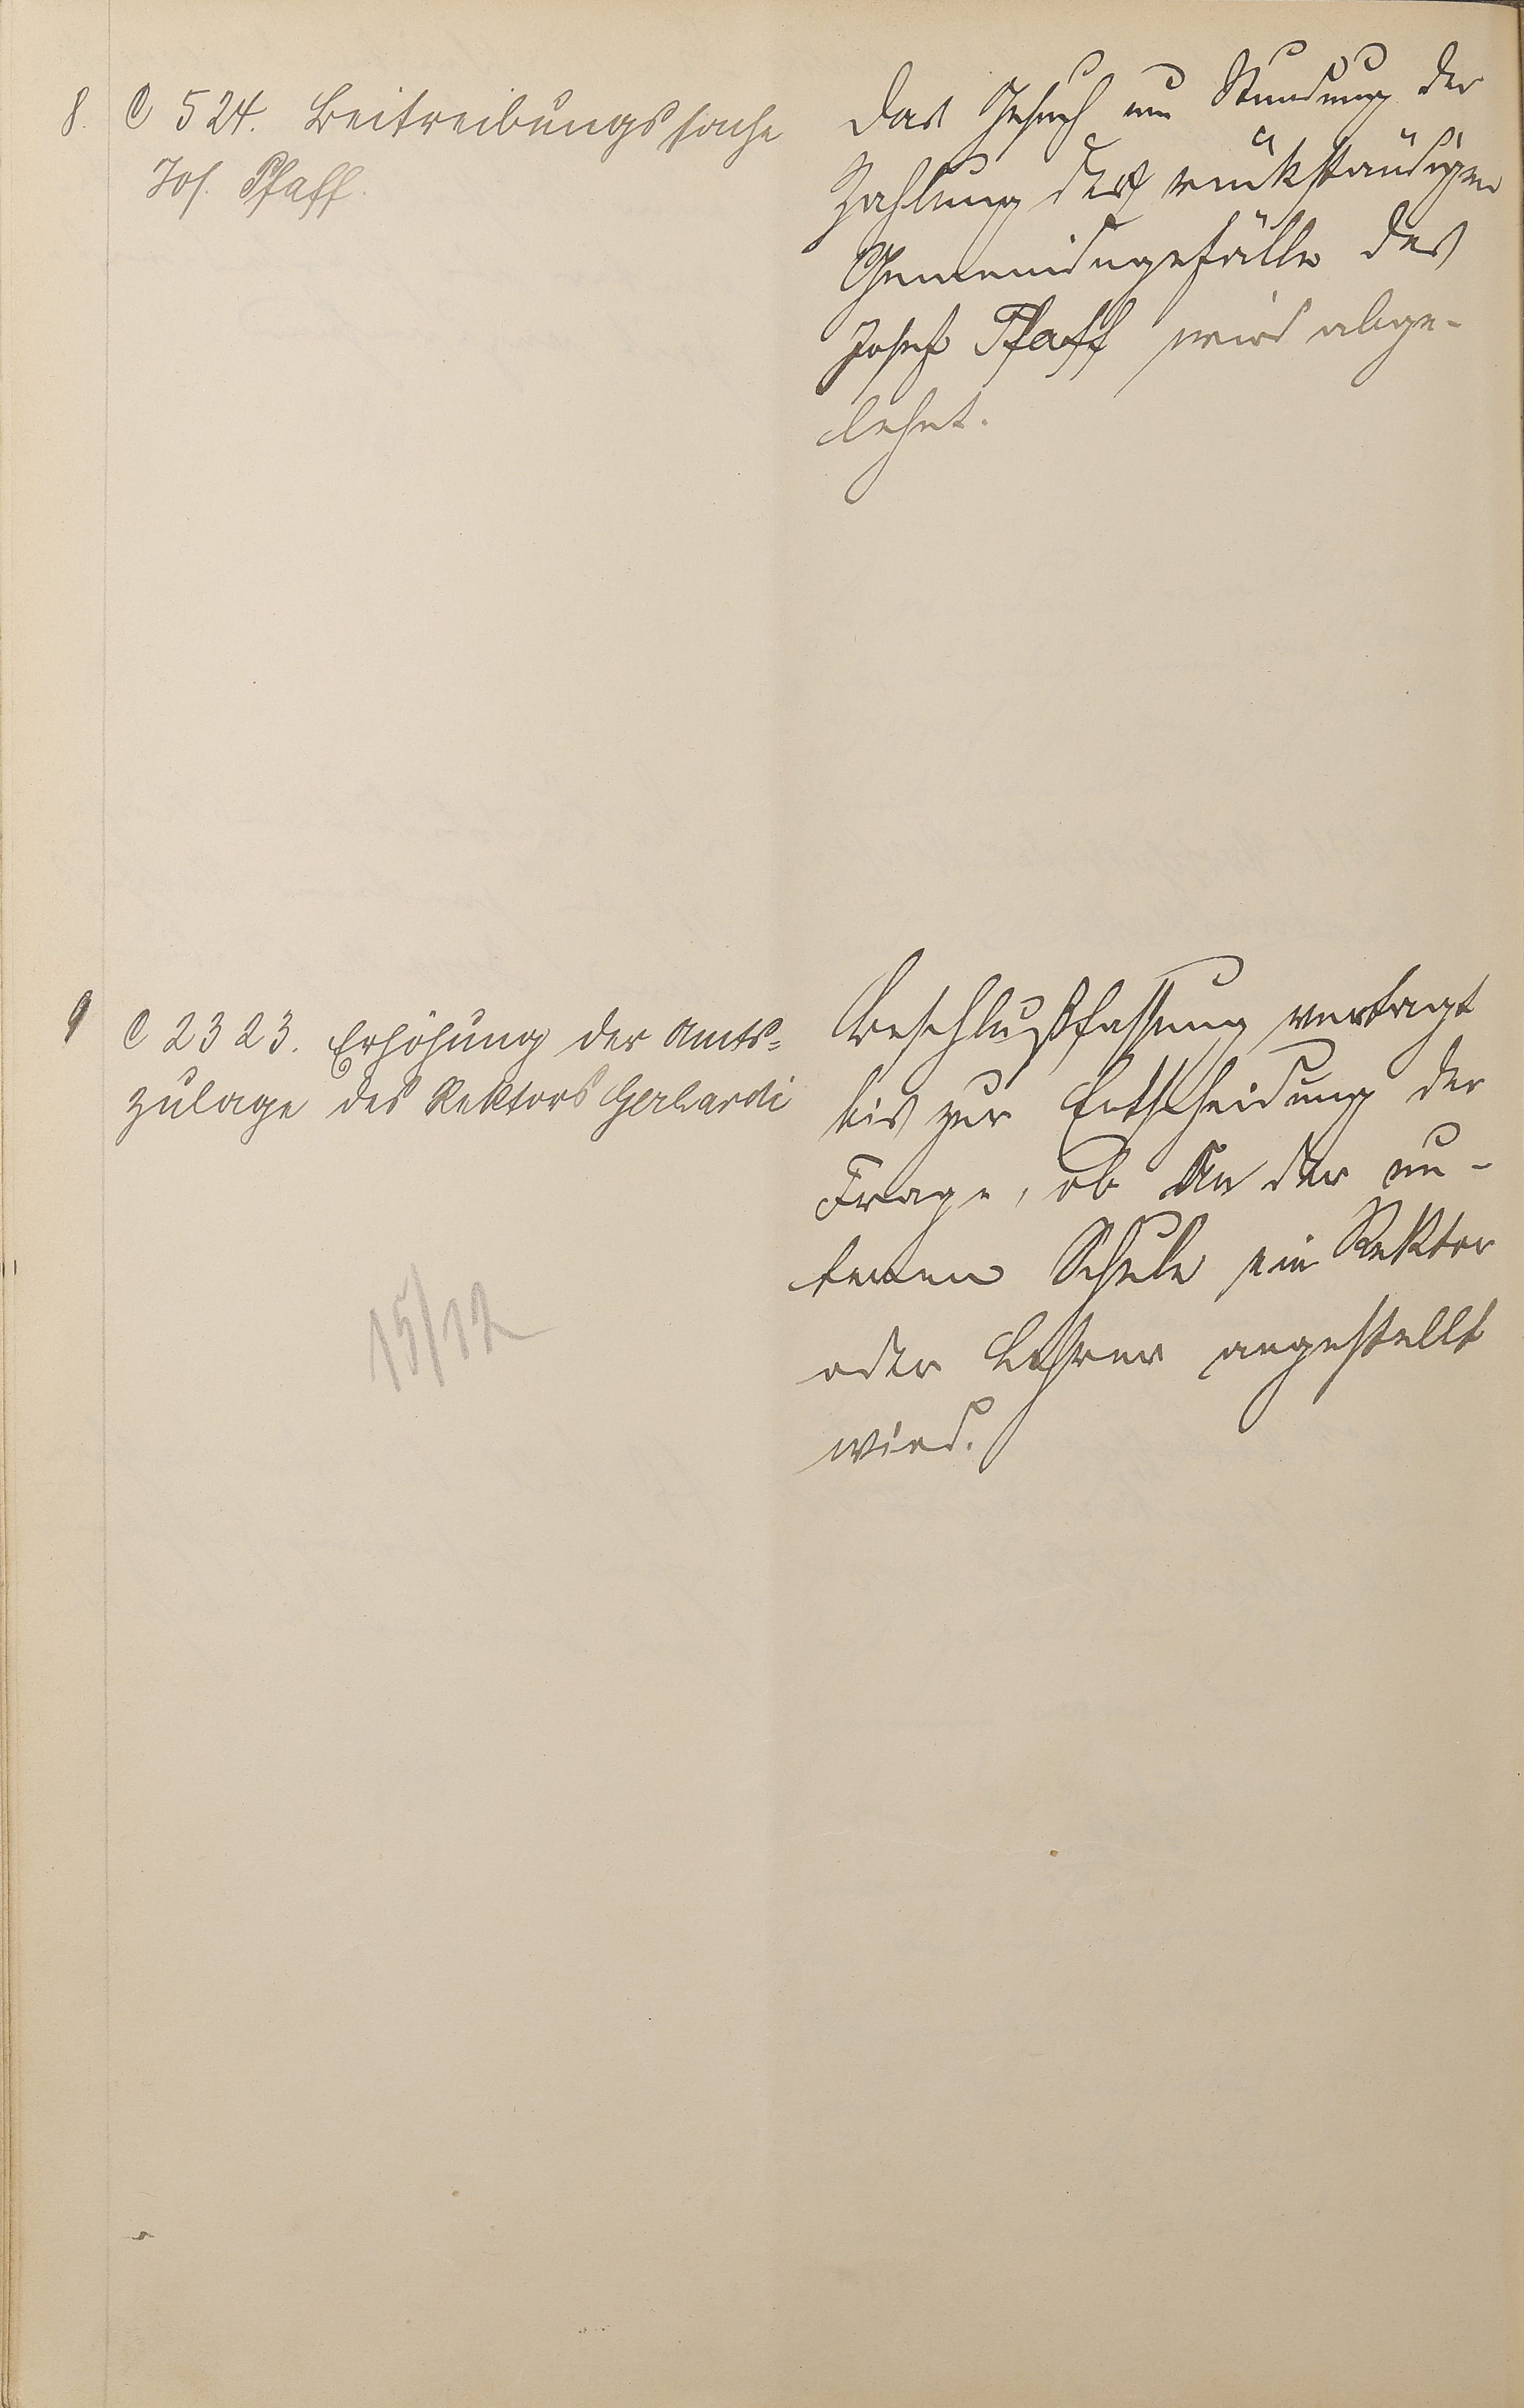 8. C 524. Beitreibungssache
Jos. Pfaff.
Das Gesuch um Stundung der
Zahlung der rückständigen
Gemeindegefälle des
Josef Pfaff wird abge-
lehnt.
9 C 2323. Erhöhung der Amts=
zulage des Rektors Gerhardi
15/12
Beschlußfassung vertagt
bis zur Entscheidung der
Frage, ob an der un-
teren Schule ein Rektor
oder Lehrer angestellt
wird.